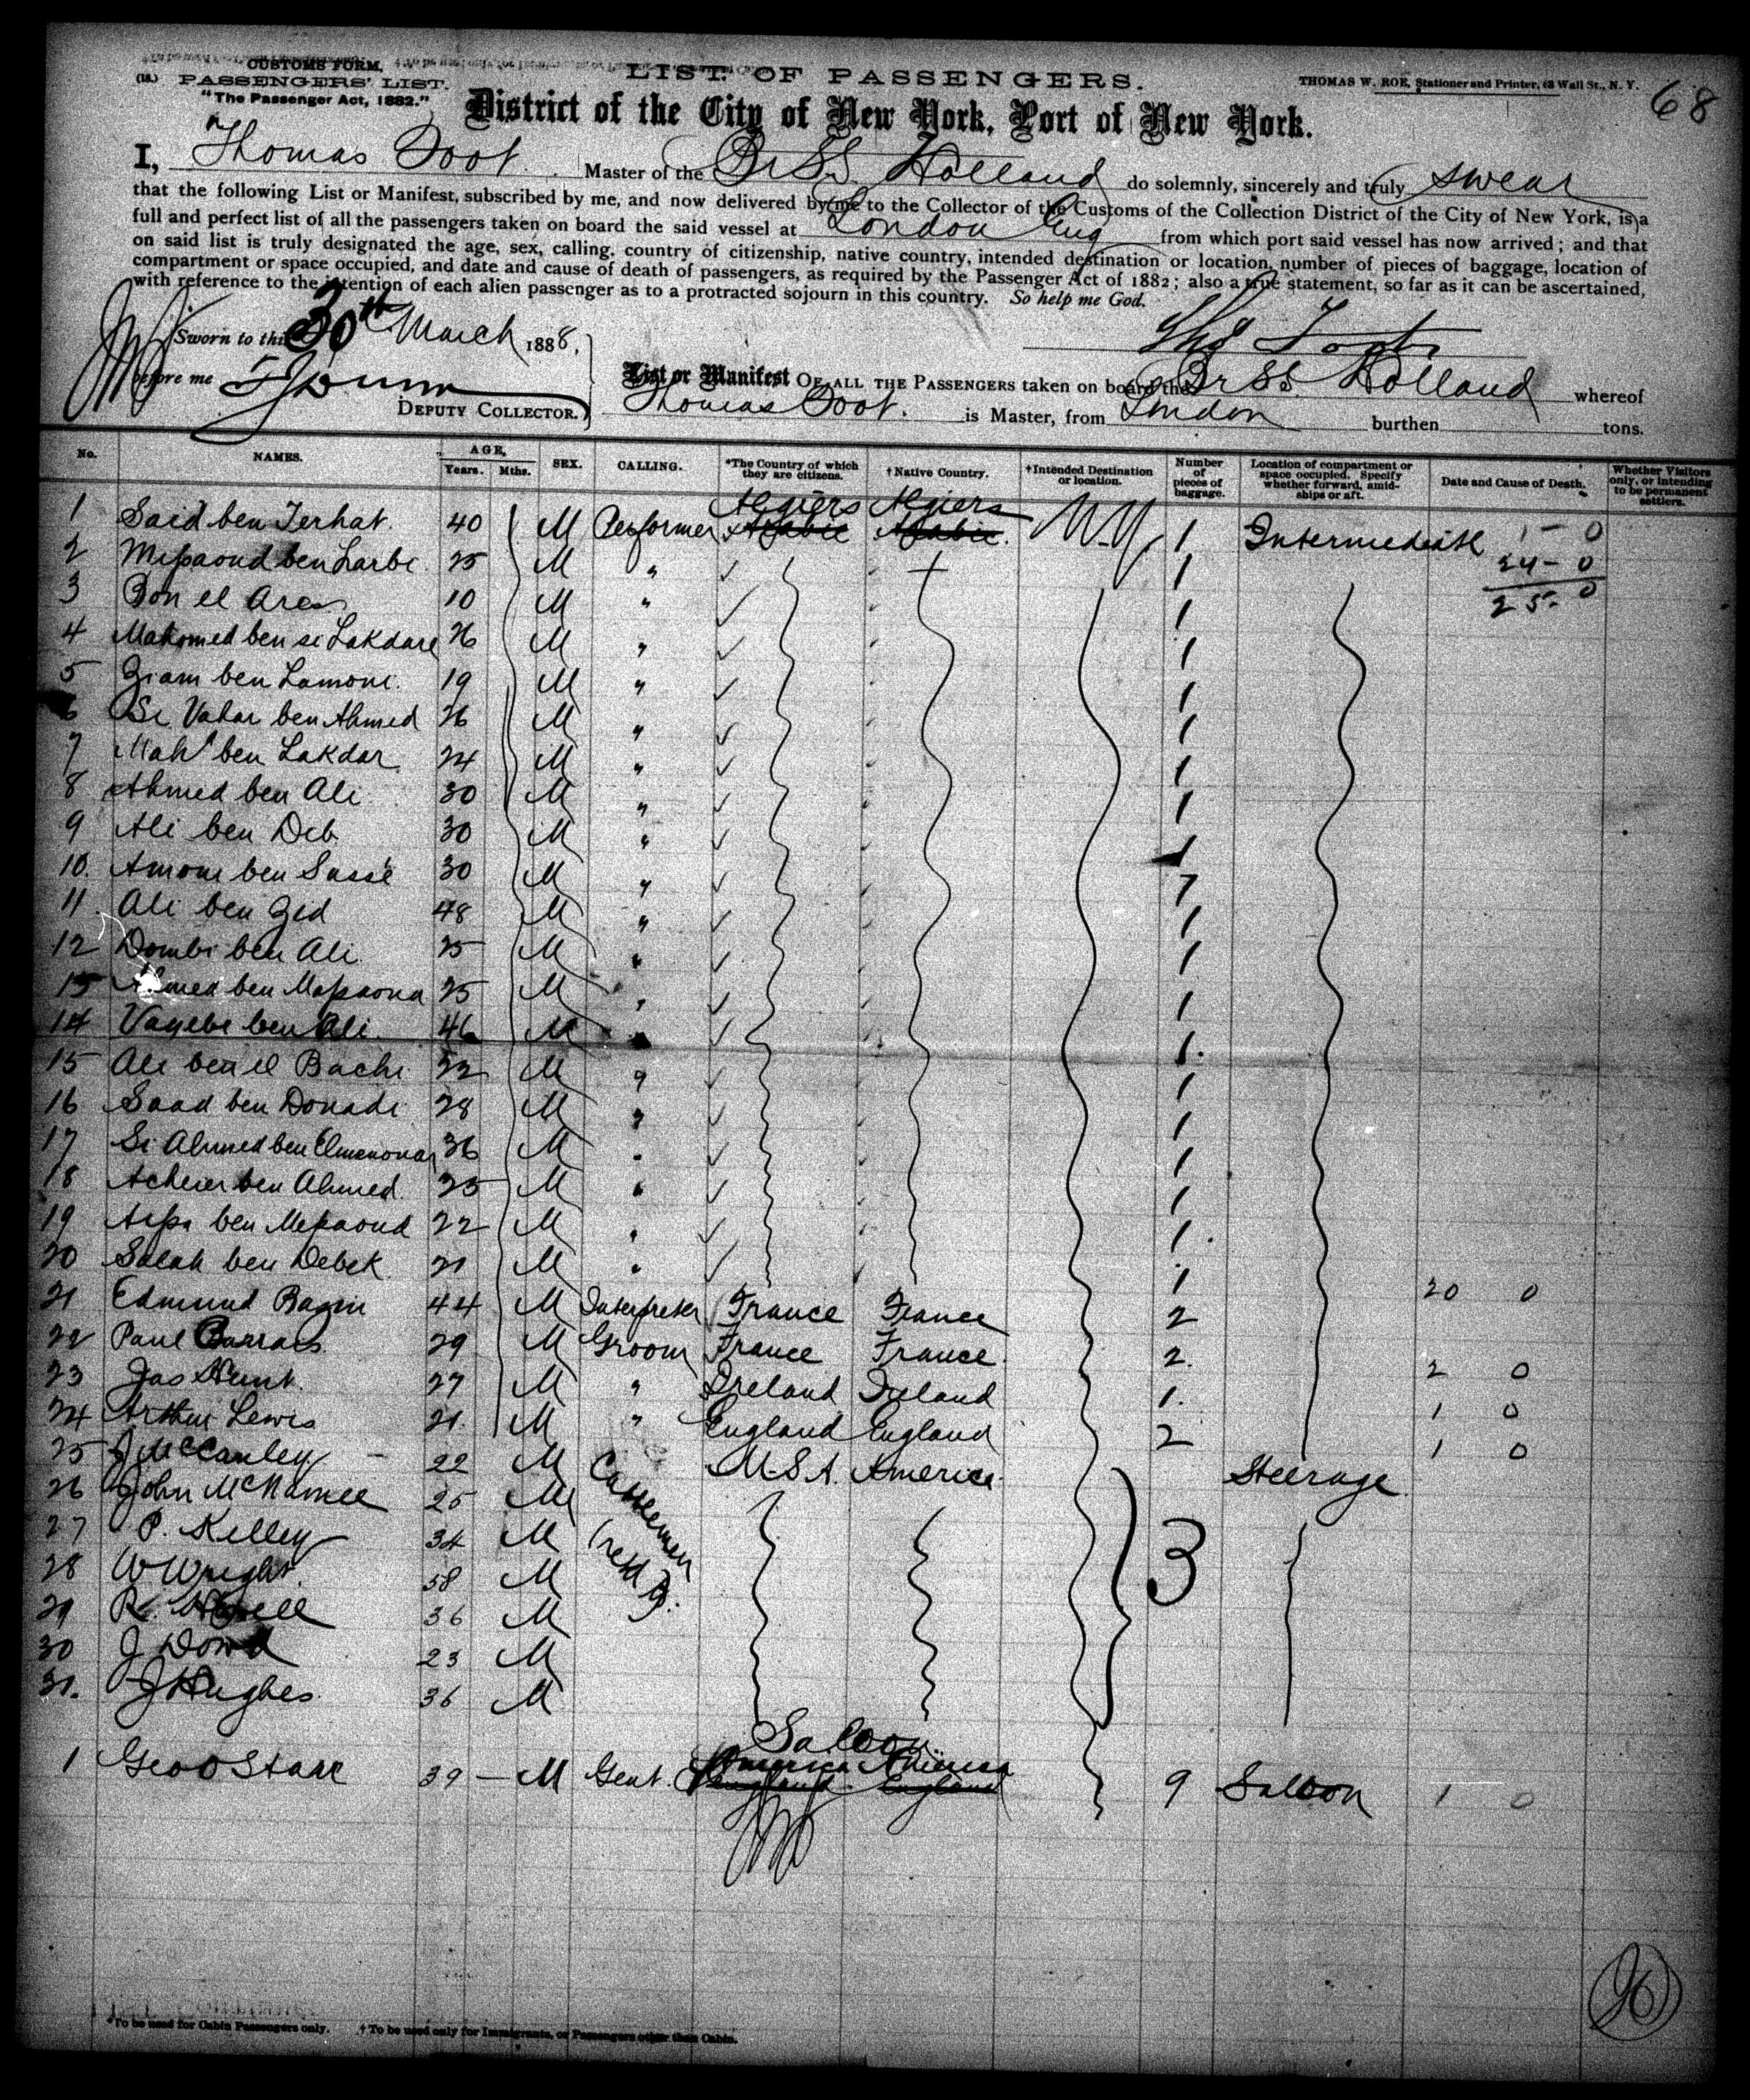 CUSTOMS FORM.
(18.) PASSENGERS' LIST.
"The Passenger Act, 1882."
LIST OF PASSENGERS.
THOMAS W. ROE, Stationer and Printer, 63 Wall St., N. Y.
68
District of the City of New York, Port of New York.
I, Thomas Foot. Master of the Br SS. Holland do solemnly, sincerely and truly swear
that the following List or Manifest, subscribed by me, and now delivered by me to the Collector of the Customs of the Collection District of the City of New York, is a
full and perfect list of all the passengers taken on board the said vessel at London Eng from which port said vessel has now arrived; and that
on said list is truly designated the age, sex, calling, country of citizenship, native country, intended destination or location, number of pieces of baggage, location of
compartment or space occupied, and date and cause of death of passengers, as required by the Passenger Act of 1882; also a true statement, so far as it can be ascertained,
with reference to the intention of each alien passenger as to a protracted sojourn in this country. So help me God.
Sworn to this 30th March 1888,
Thos Foot
before me
DEPUTY COLLECTOR.
List or Manifest OF ALL THE PASSENGERS taken on board the Br SS. Holland whereof
Thomas Foot. is Master, from London burthen tons.
No. NAMES. AGE, Years. Mths. SEX. CALLING. *The Country of which they are citizens. †Native Country. †Intended Destination or location. Number of pieces of baggage. Location of compartment or space occupied. Specify whether forward, amidships or aft. Date and Cause of Death. Whether Visitors only, or intending to be permanent settlers.
Algiers Algiers
1 Said ben Ferhat. 40 M Performer Arabie Arabie. N.Y. 1 Intermediate 1 - 0
2 Messaoud ben Larbi. 25 M " 1 24 - 0
3 Bon el Ares 10 M " 1 25 - 0
4 Mahomed ben si Lakdare 26 M " 1
5 Ziam ben Lamoni. 19 M " 1
6 Si Vahar ben Ahmed 26 M " 1
7 Mahd ben Lakdar 24 M " 1
8 Ahmed ben Ali 30 M " 1
9 Ali ben Deb 30 M " 1
10. Amom ben Sassé 30 M " 1
11 Ali ben Zid 48 M " 1
12 Dombi ben Ali 25 M " 1
13 Ahmed ben Massaoud 25 M " 1
14 Vayebe ben Ali. 46 M " 1.
15 Ali ben el Bachi 22 M " 1
16 Saad ben Donadi 28 M " 1
17 Si Ahmed ben Elmenouar 36 M " 1
18 Acherer ben Ahmed. 25 M " 1
19 Aissa ben Messaoud 22 M " 1
20 Salah ben Debek 21 M " 1 20 0
21 Edmund Bazin 44 M Interpreter France France 2
22 Paul Barrais 29 M Groom France France. 2. 2 0
23 Jas Hunt. 27 M " Ireland Ireland 1. 1 0
24 Arthur Lewis 21. M " England England 2 1 0
25 J McCauley 22 M Cattlemen U.S.A. America. Steerage.
26 John McNamee 25 M
27 P. Kelley 34 M 3
28 W Wright. 58 M
29 R. 36 M
30 J Dowd 23 M
31. J Hughes. 36 M
Saloon
America America
1 Geo O Starr 39 - M Gent. England England 9 Saloon 1 0
26
*To be used for Cabin Passengers only. †To be used only for Immigrants, or Passengers other than Cabin.